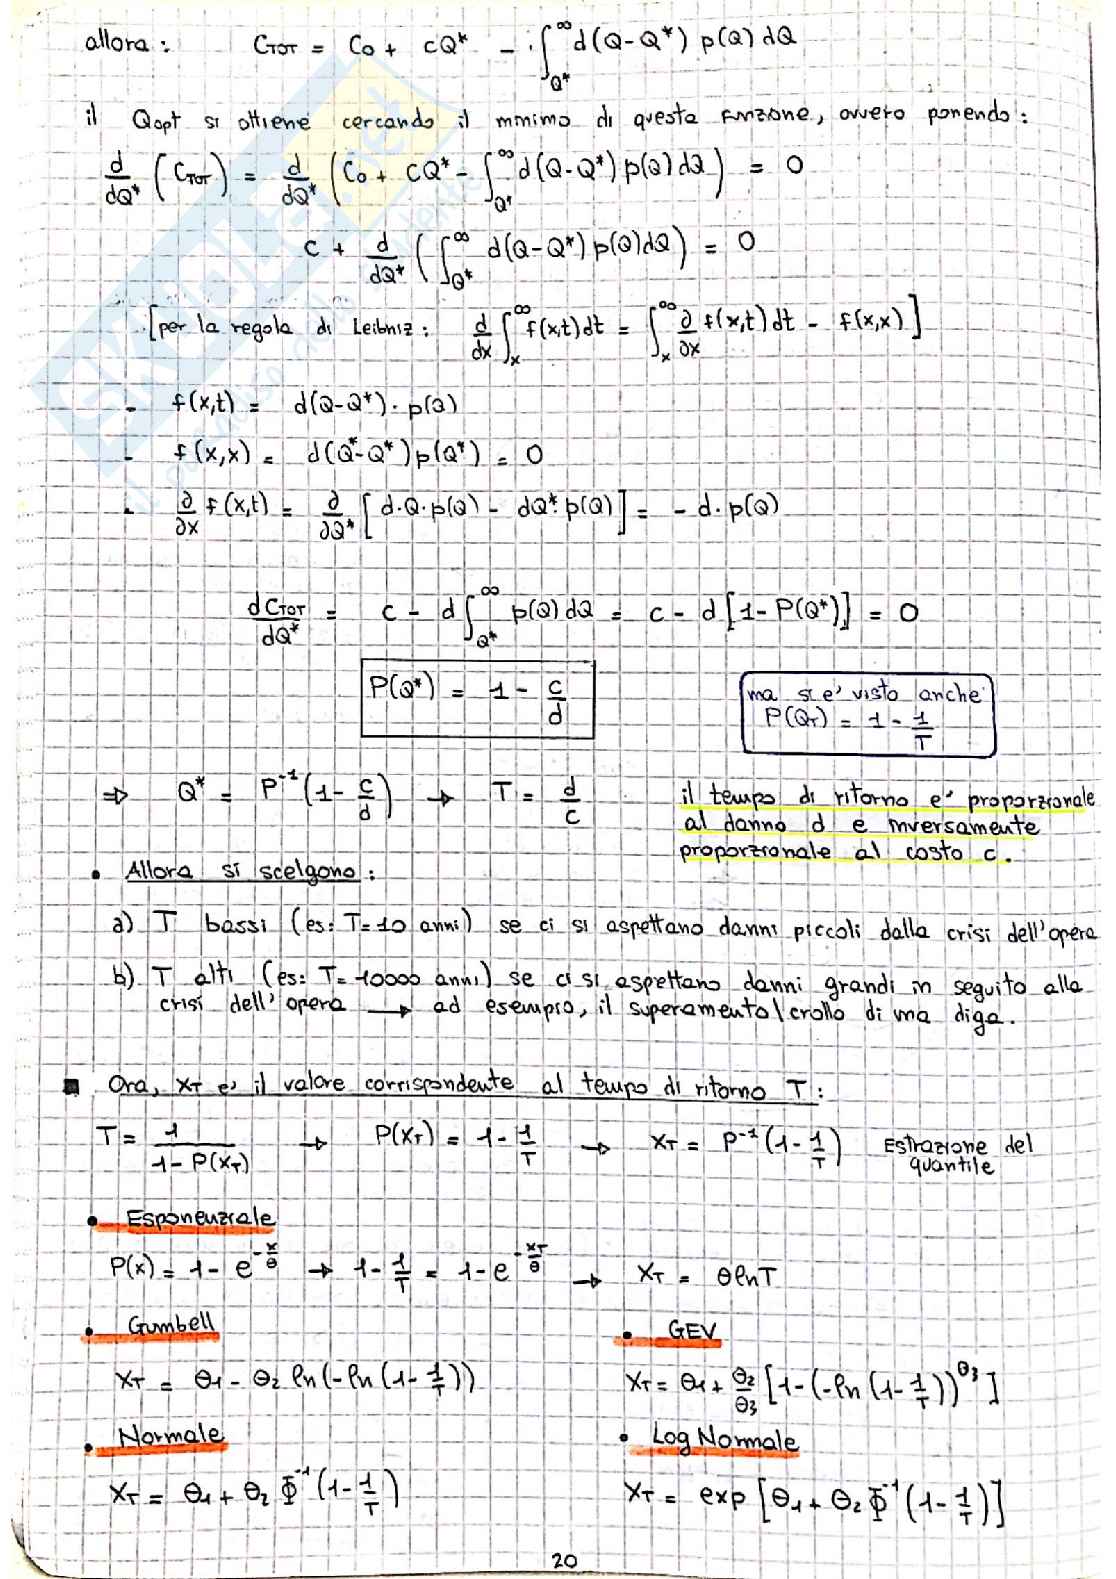 allora: C_TOT = C₀ + cQ* - ∫_Q*^∞ d(Q-Q*) p(Q) dQ
il Qopt si ottiene cercando il minimo di questa funzione, ovvero ponendo:
d/dQ* (C_TOT) = d/dQ* (C₀ + cQ* - ∫_Q*^∞ d(Q-Q*) p(Q) dQ) = 0
c + d/dQ* (∫_Q*^∞ d(Q-Q*) p(Q) dQ) = 0
[per la regola di Leibniz: d/dx ∫_x^∞ f(x,t) dt = ∫_x^∞ ∂/∂x f(x,t) dt - f(x,x)]
- f(x,t) = d(Q-Q*)·p(Q)
- f(x,x) = d(Q*-Q*)p(Q*) = 0
- ∂/∂x f(x,t) = ∂/∂Q* [d·Q·p(Q) - dQ*·p(Q)] = -d·p(Q)
dC_TOT/dQ* = c - d ∫_Q*^∞ p(Q) dQ = c - d [1-P(Q*)] = 0
P(Q*) = 1 - c/d
ma si e' visto anche
P(Q_T) = 1 - 1/T
⇒ Q* = P⁻¹(1 - c/d) → T = d/c
il tempo di ritorno e' proporzionale
al danno d e inversamente
proporzionale al costo c.
• Allora si scelgono:
a) T bassi (es: T=10 anni) se ci si aspettano danni piccoli dalla crisi dell'opera
b) T alti (es: T= 10000 anni) se ci si aspettano danni grandi in seguito alla
crisi dell'opera → ad esempio, il superamento\crollo di una diga.
■ Ora, X_T e' il valore corrispondente al tempo di ritorno T:
T = 1/(1-P(X_T)) → P(X_T) = 1 - 1/T → X_T = P⁻¹(1 - 1/T) Estrazione del
quantile
• Esponenziale
P(x) = 1 - e^(-x/θ) → 1 - 1/T = 1 - e^(-X_T/θ) → X_T = θ ln T
• Gumbell
X_T = θ₁ - θ₂ ln(-ln(1 - 1/T))
• GEV
X_T = θ₁ + θ₂/θ₃ [1-(-ln(1 - 1/T))^θ₃]
• Normale
X_T = θ₁ + θ₂ Φ⁻¹(1 - 1/T)
• Log Normale
X_T = exp [θ₁ + θ₂ Φ⁻¹(1 - 1/T)]
20